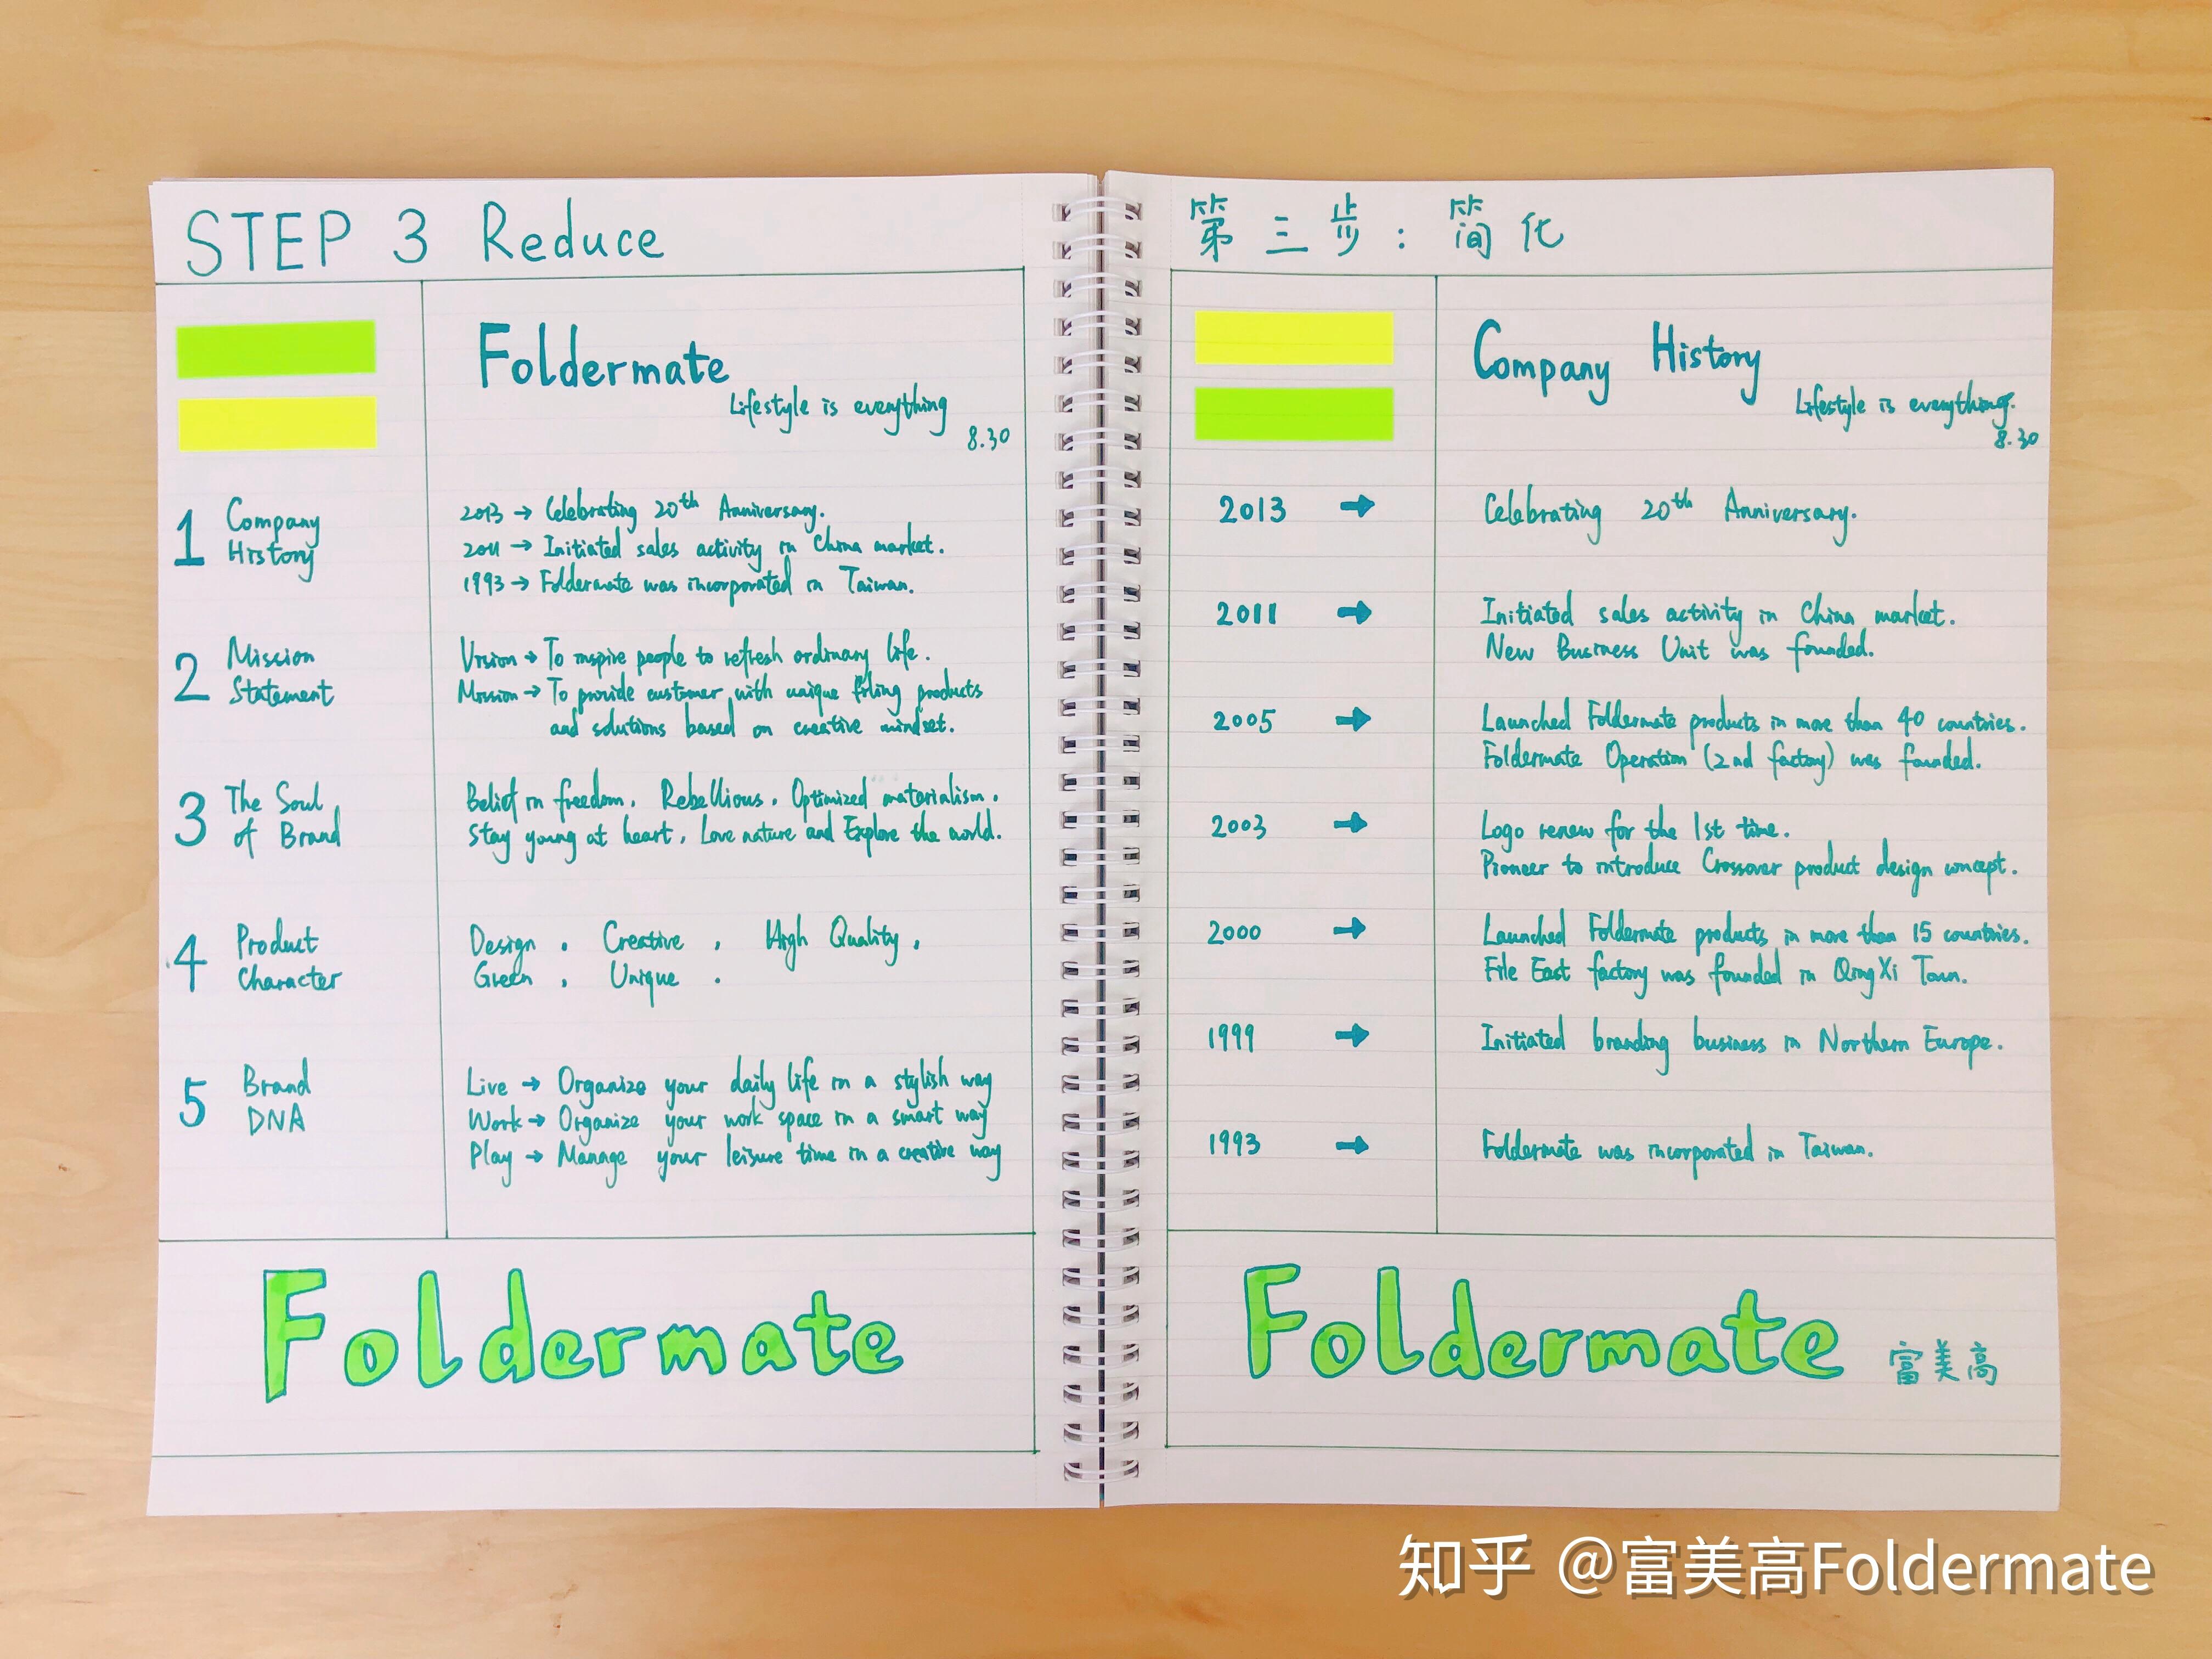 STEP 3 Reduce
Foldermate
Lifestyle is everything
8.30
1 Company History
2013 → Celebrating 20th Anniversary.
2011 → Initiated sales activity in China market.
1993 → Foldermate was incorporated in Taiwan.
2 Mission Statement
Vision → To inspire people to refresh ordinary life.
Mission → To provide customer with unique filing products
and solutions based on creative mindset.
3 The Soul of Brand
Belief in freedom, Rebellious, Optimized materialism,
Stay young at heart, Love nature and Explore the world.
4 Product Character
Design, Creative, High Quality,
Green, Unique.
5 Brand DNA
Live → Organize your daily life in a stylish way
Work → Organize your work space in a smart way
Play → Manage your leisure time in a creative way
Foldermate
第三步:简化
Company History
Lifestyle is everything.
8.30
2013 → Celebrating 20th Anniversary.
2011 → Initiated sales activity in China market.
New Business Unit was founded.
2005 → Launched Foldermate products in more than 40 countries.
Foldermate Operation (2nd factory) was founded.
2003 → Logo renew for the 1st time.
Pioneer to introduce Crossover product design concept.
2000 → Launched Foldermate products in more than 15 countries.
File East factory was founded in QingXi Town.
1999 → Initiated branding business in Northern Europe.
1993 → Foldermate was incorporated in Taiwan.
Foldermate 富美高
知乎 @富美高Foldermate